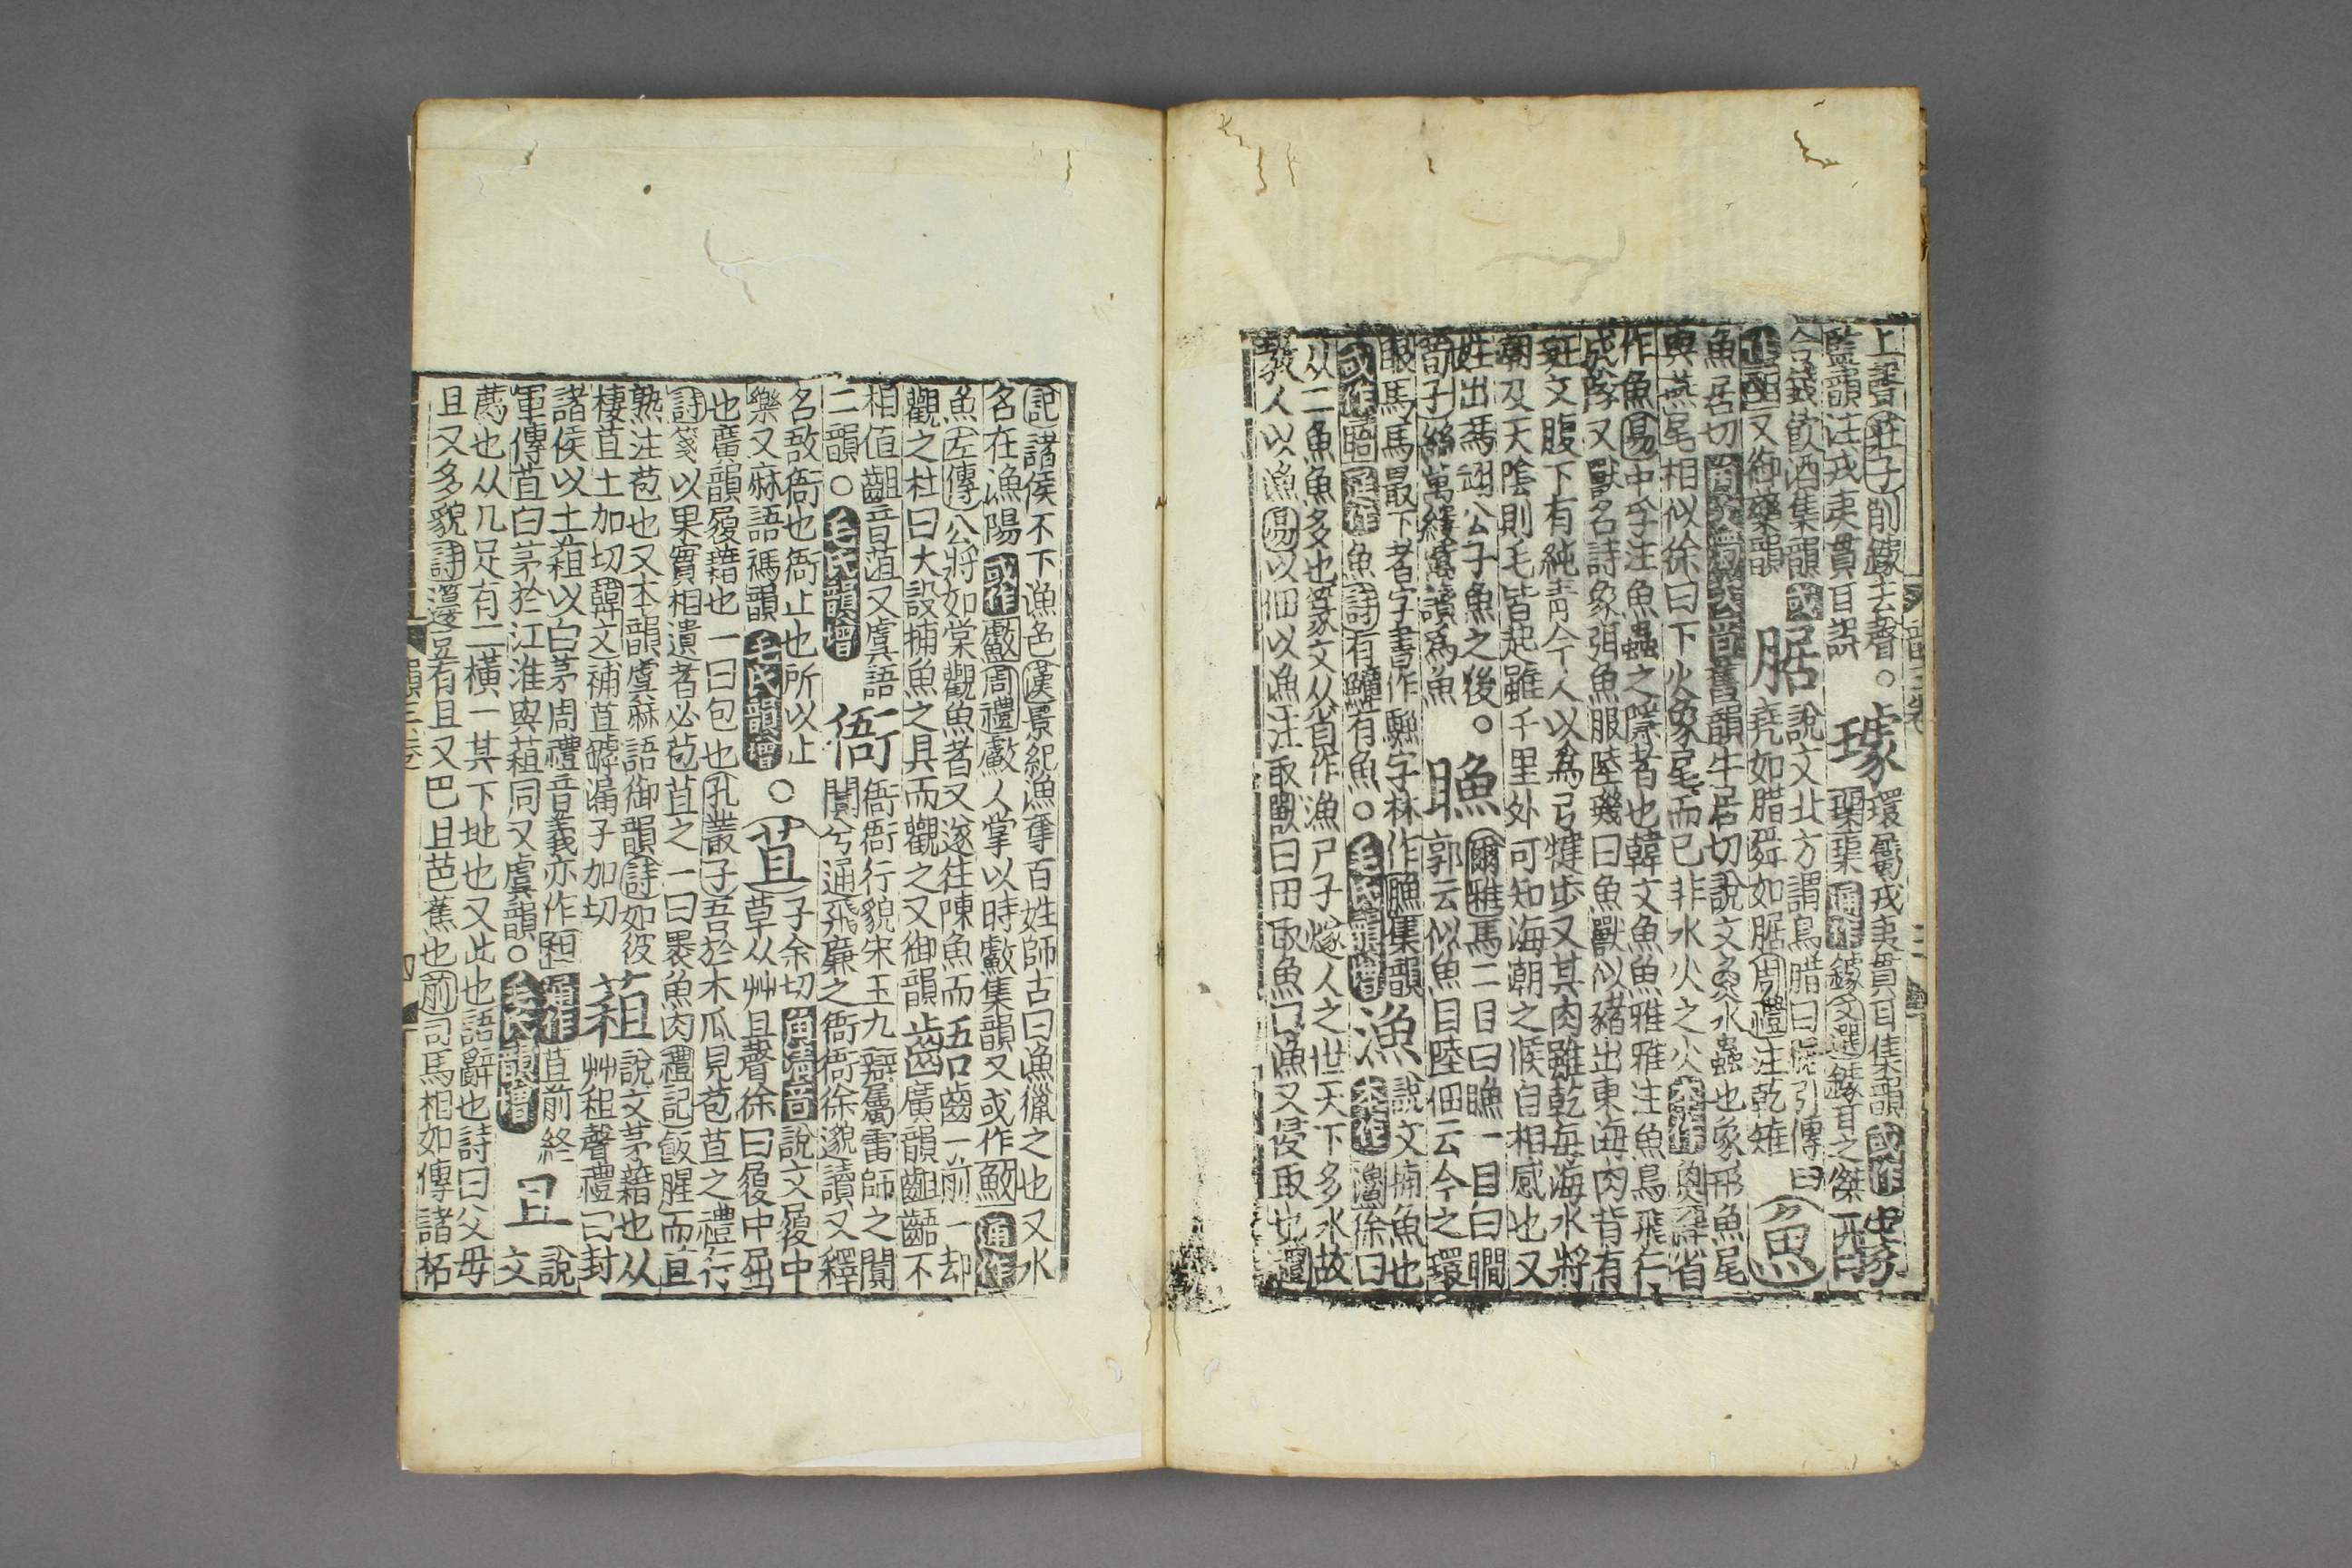 上聲莊子削鐻去聲○璩環屬戎夷貫耳集韻或作
監韻注戎夷貫耳器璩璖通作鐻文選鐻耳之傑
合錢飲酒集韻或作醵又御藥韻
腒說文北方謂鳥腊曰腒引傳曰堯如腊舜如腒周禮注乾雉
魚
魚居切舊韻牛居切說文魚水蟲也象形魚尾
與燕尾相似徐曰下火象尾而已非水火之火本作𤋳
作魚易中孚注魚蟲之隱者也韓文魚魚雅雅注魚鳥飛行
成隊又獸名詩象弭魚服陸璣曰魚獸似豬出東海肉背有
斑文腹下有純青今人以為弓鞬步又其肉雖乾每海水將
潮及天陰則毛皆起雖千里外可知海潮之候自相感也又
姓出馮翊公子魚之後○䲣爾雅馬二目白䲣一目白瞯
郭云似魚目陸佃云今之環
眼馬馬最下者字書作䮫字林作䲣集韻
或作𥆐通作魚詩有驔有魚○毛氏韻增漁說文捕魚也
本作𤅫徐曰
从二魚魚多也篆文从省作漁尸子燧人之世天下多水故
教人以漁易以佃以漁注取獸曰田取魚曰漁又侵取也禮
記諸侯不下漁色漢景紀漁奪百姓師古曰漁獵之也又水
名在漁陽或作䱷周禮䱷人掌以時䱷集韻又或作𩼪通作
魚左傳公將如棠觀魚者又遂往陳魚而
觀之杜曰大設捕魚之具而觀之又御韻齬齒一前一却
相值齟音菹又虞語
二韻○毛氏韻增衙衙衙行貌宋玉九辯屬雷師之闐
闐兮通飛廉之衙衙徐邈讀又釋
名敔衙也衙止也所以止
樂又麻語禡韻毛氏韻增○苴子余切角清音說文履中
草从艸且聲徐曰履中薦
也廣韻履藉也一曰包也孔叢子吾於木瓜見苞苴之禮行
詩箋以果實相遺者必苞苴之一曰褁魚肉禮記飯腥而苴
熟注苞也又本韻虞麻語御韻詩如彼
棲苴土加切韓文補苴罅漏子加切蒩說文茅藉也从
艸租聲禮曰封
諸侯以土蒩以白茅周禮音義亦作租通作苴前終
軍傳苴白茅於江淮與蒩同又虞韻○毛氏韻增且說文
薦也从几足有二橫一其下地也又此也語辭也詩曰父母
且又多貌詩籩豆有且又巴且芭蕉也前司馬相如傳諸柘